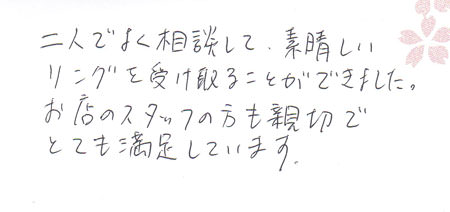 二人でよく相談して、素晴しい
リングを受け取ることができました。
お店のスタッフの方も親切で
とても満足しています。